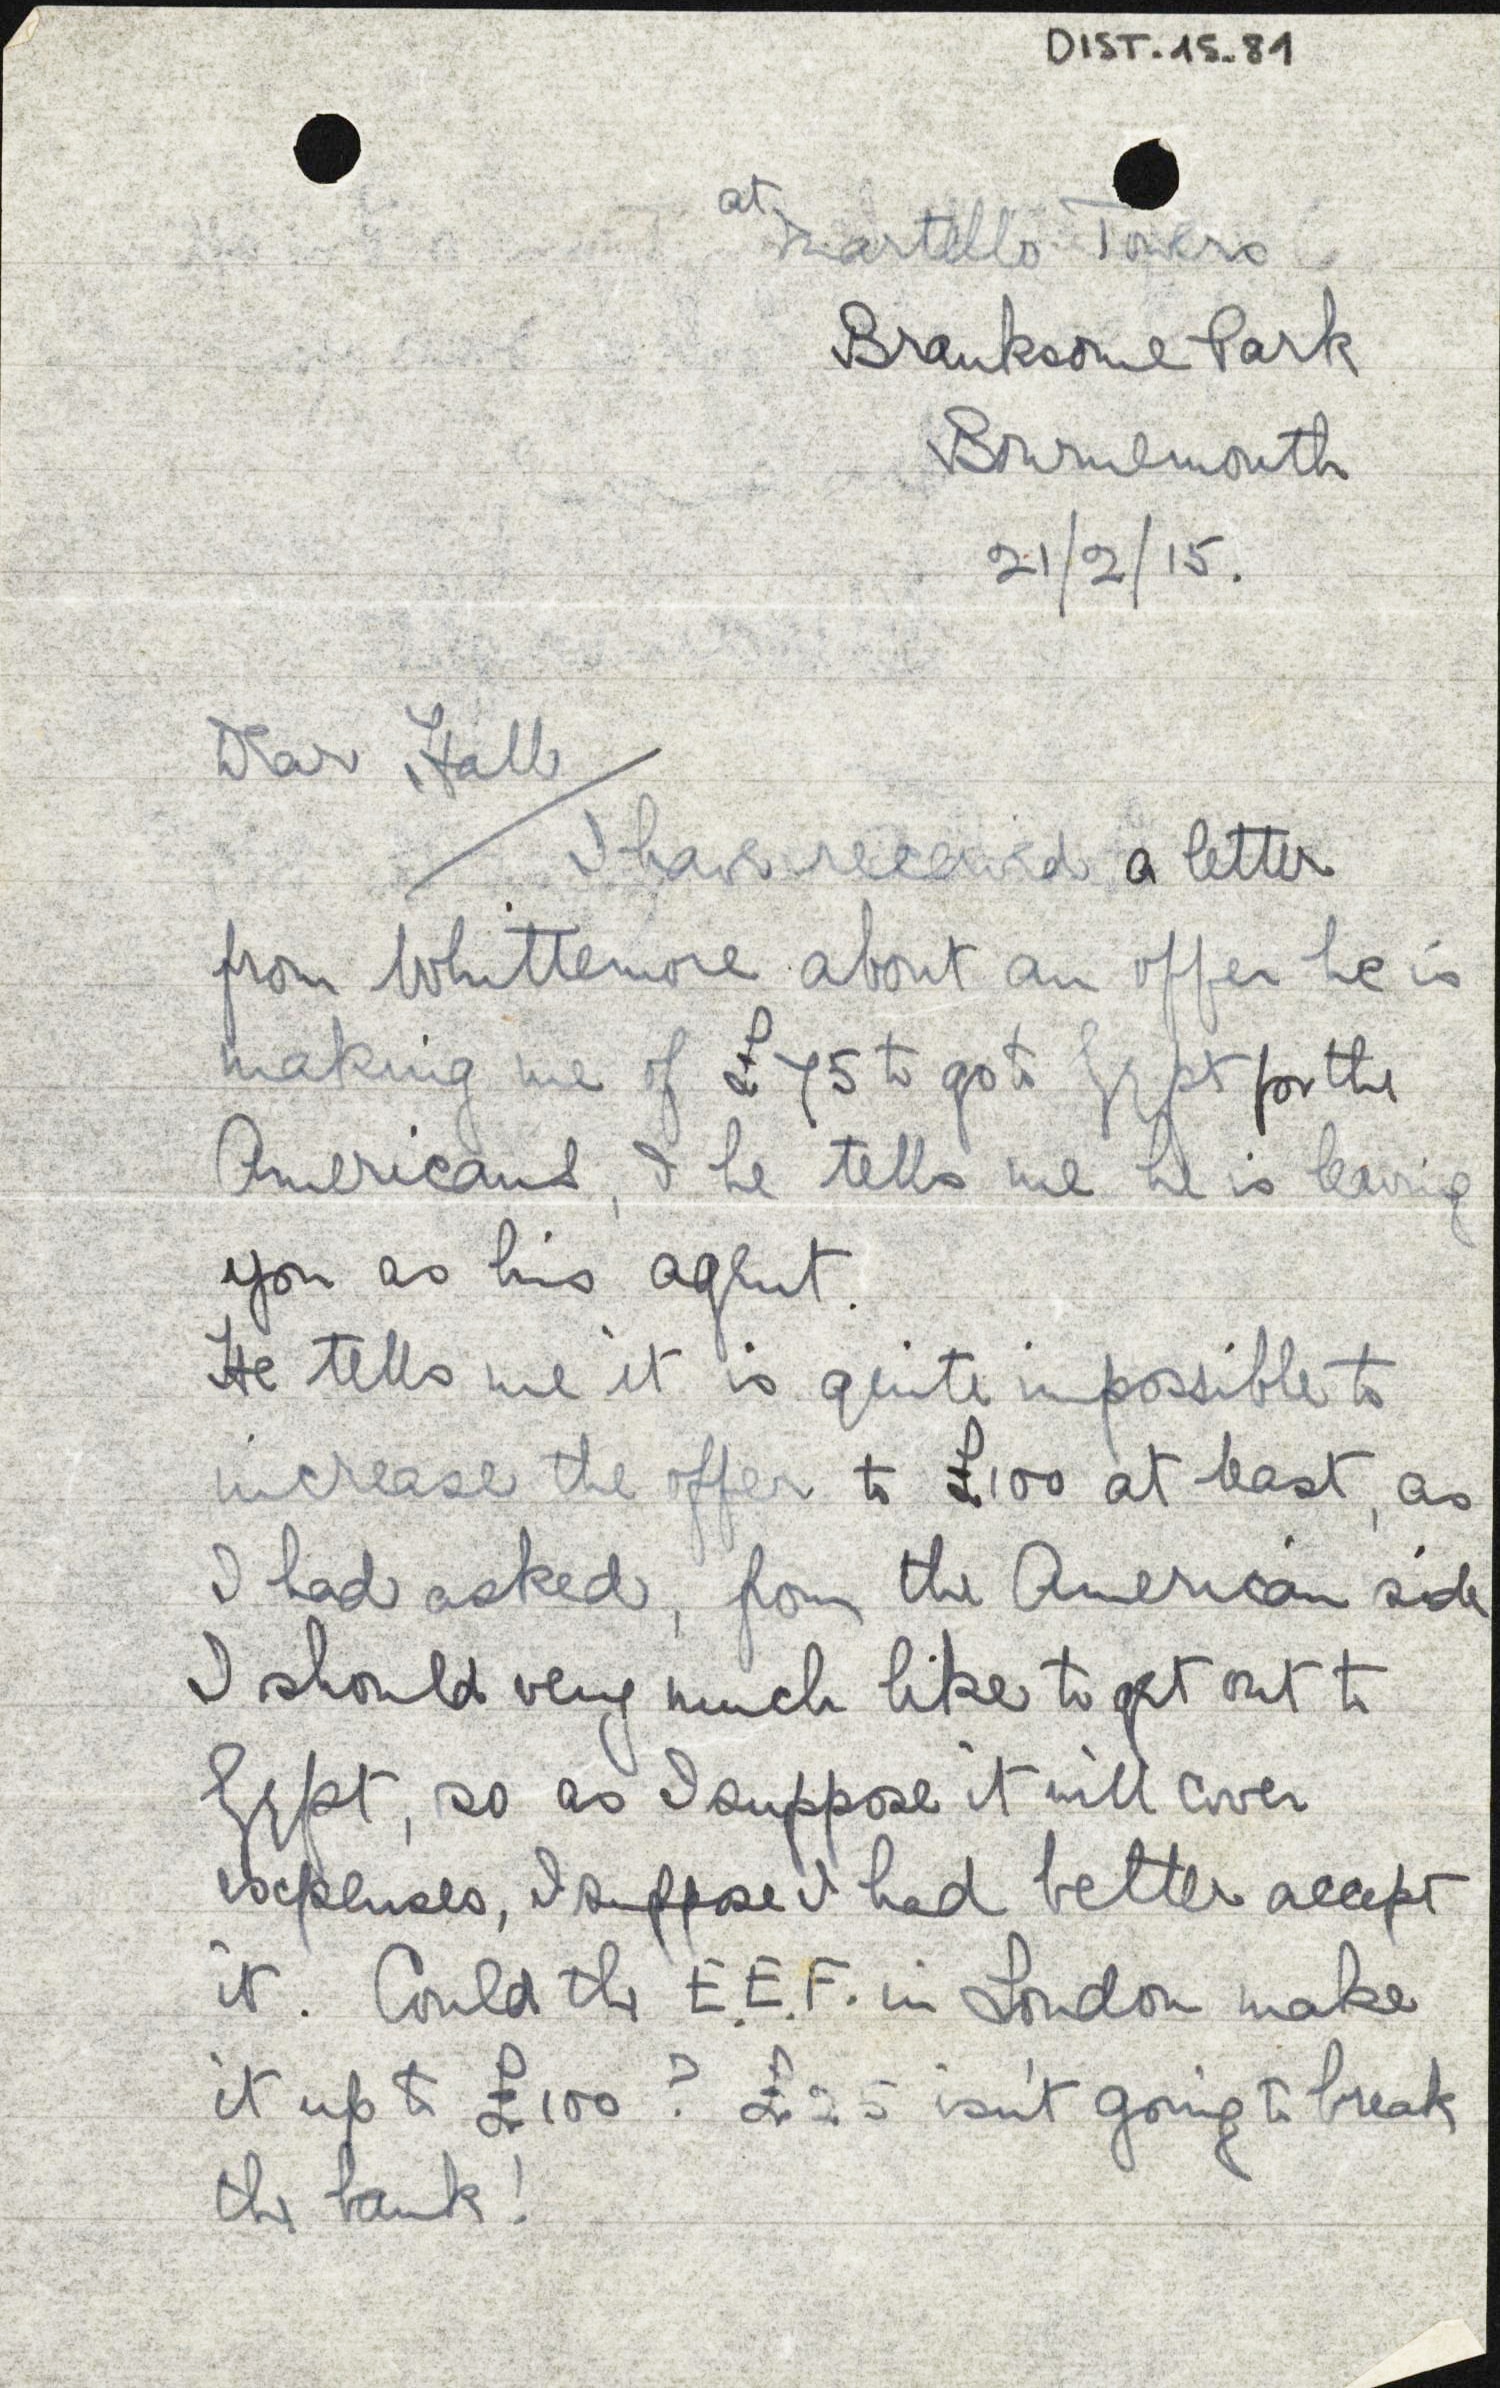 DIST.15.81
at
Martello Towers
Branksome Park
Bournemouth
21/2/15.
Dear Hall
I have received a letter
from Whittemore about an offer he is
making me of £75 to go to Egypt for the
Americans, & he tells me he is leaving
you as his agent.
He tells me it is quite impossible to
increase the offer to £100 at least, as
I had asked, from the American side
I should very much like to get out to
Egypt, so as I suppose it will cover
expenses, I suppose I had better accept
it. Could the E.E.F. in London make
it up to £100? £25 isn't going to break
the bank!